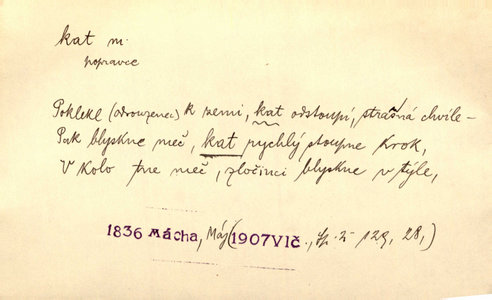 kat m.
popravce
Poklekl (odsouzenec) k zemi, kat odstoupí, strašná chvíle –
Pak blyskne meč, kat rychlý stoupne krok,
V kolo tne meč, zločinci blyskne v týle,
1836 Mácha, Máj (1907 Vlč., Sp. 2 129, 28,)